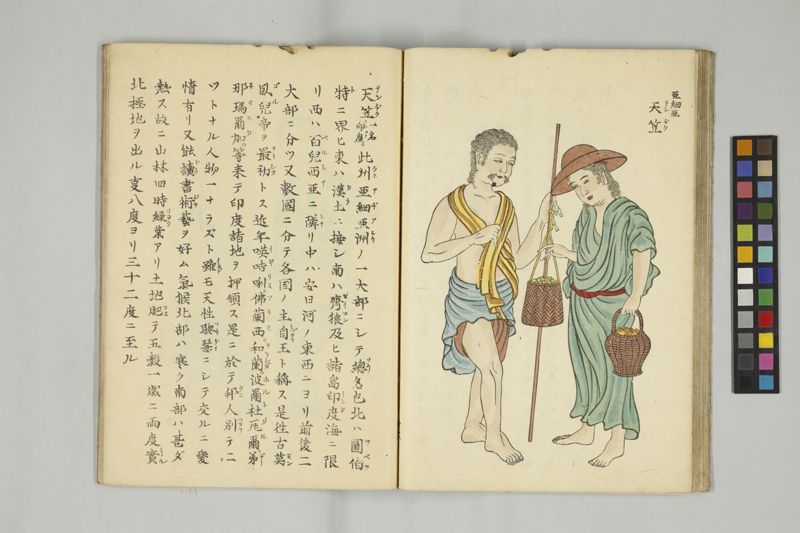 亜細亜
天竺
テンヂク
天竺一名印度此州亜細亜洲ノ一大部ニシテ總名也北ハ圖伯
特ニ界ヒ東ハ漢土ニ接シ南ハ齊狼及ヒ諸島印度海ニ限
リ西ハ百兒西亜ニ隣リ中ハ安日河ノ東西ニヨリ前後二
大部ニ分ツ又數國ニ分テ各國ノ主自王ト稱ス是徃古莫
臥兒帝ヲ最初トス近年暎咭唎佛蘭西和蘭波爾杜瓦爾弟
那瑪爾加等来テ印度諸地ヲ押領ス是ニ於テ邦人別テ二
ツトナル人物一ナラズト雖モ天性聰慧ニシテ交ルニ愛
情有リ又能讀書術藝ヲ好ム氣候北部ハ寒ク南部ハ甚ダ
熱ス故ニ山林四時緑葉アリ土地肥テ五穀一歳ニ兩度實
北極地ヲ出ル亥八度ヨリ三十二度ニ至ル